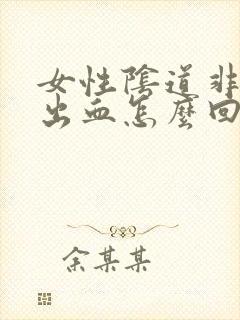 女性陰道非
出血怎麼回
余某某